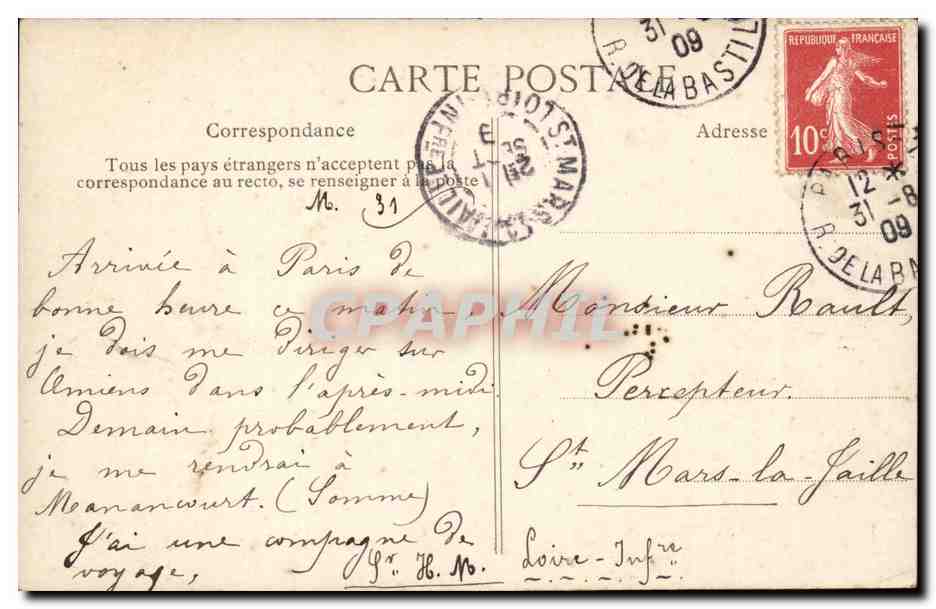 CARTE POSTALE
Correspondance
Tous les pays étrangers n'acceptent pas la
correspondance au recto, se renseigner à la poste
M. 31
Arrivée à Paris de
bonne heure ce matin,
je dois me diriger sur
Amiens dans l'après-midi
Demain probablement,
je me rendrai à
Manancourt. (Somme)
J'ai une compagne de
voyage,
Sr. H. M.
Adresse
Monsieur Rault,
Percepteur.
St Mars-la-Jaille
Loire-Infre
REPUBLIQUE FRANÇAISE
10c
POSTES
31
09
R. DE LA BASTIL
PARIS
12 *
31 -8
09
R. DE LA BA
ST MARS-LA-JAILLE
LOIRE INFRE
CPAPHIL